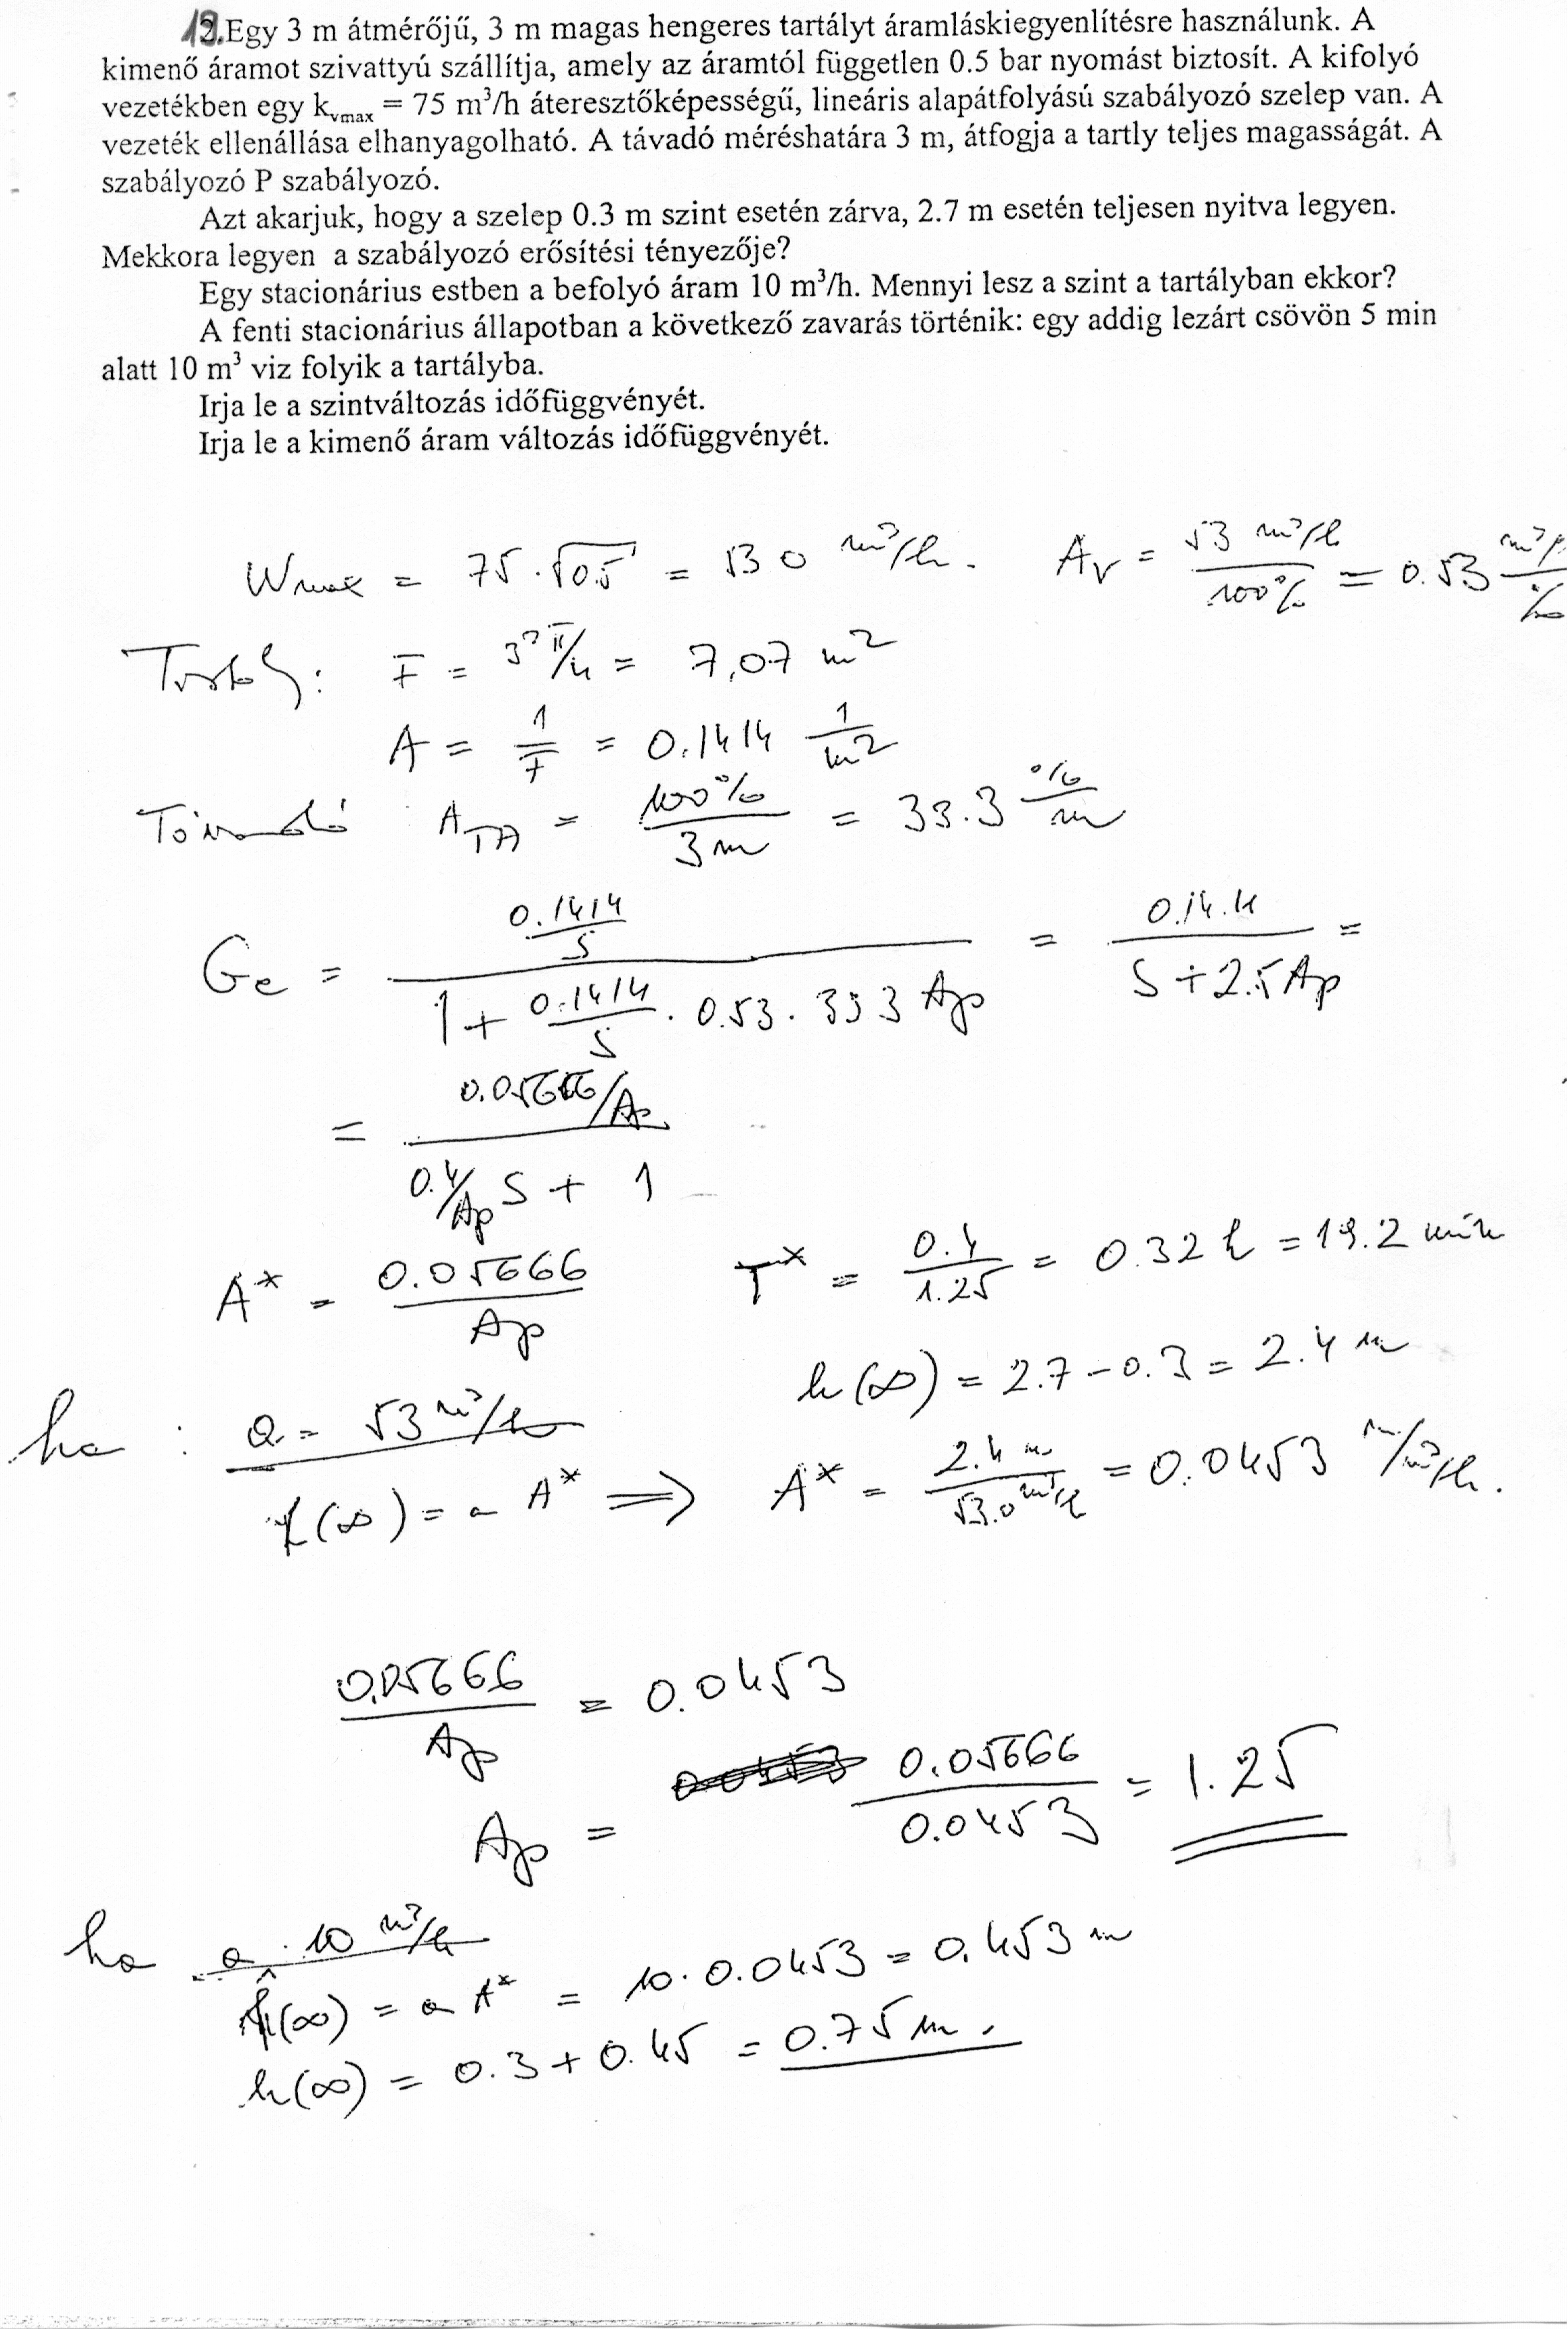 12.Egy 3 m átmérőjű, 3 m magas hengeres tartályt áramláskiegyenlítésre használunk. A
kimenő áramot szivattyú szállítja, amely az áramtól független 0.5 bar nyomást biztosít. A kifolyó
vezetékben egy kvmax = 75 m³/h áteresztőképességű, lineáris alapátfolyású szabályozó szelep van. A
vezeték ellenállása elhanyagolható. A távadó méréshatára 3 m, átfogja a tartly teljes magasságát. A
szabályozó P szabályozó.
Azt akarjuk, hogy a szelep 0.3 m szint esetén zárva, 2.7 m esetén teljesen nyitva legyen.
Mekkora legyen a szabályozó erősítési tényezője?
Egy stacionárius estben a befolyó áram 10 m³/h. Mennyi lesz a szint a tartályban ekkor?
A fenti stacionárius állapotban a következő zavarás történik: egy addig lezárt csövön 5 min
alatt 10 m³ viz folyik a tartályba.
Irja le a szintváltozás időfüggvényét.
Irja le a kimenő áram változás időfüggvényét.
Wmax = 75 · √0.5 = 53.0 m³/h. Av = 53 m³/h / 100% = 0.53 m³/h / %
Tartály: F = 3² π/4 = 7,07 m²
A = 1/F = 0.1414 1/m²
Távadó ATA = 100% / 3 m = 33.3 %/m
Ge = (0.1414/S) / (1 + 0.1414/S · 0.53 · 33.3 Ap) = 0.1414 / (S + 2.5 Ap) =
= (0.05666/Ap) / (0.4/Ap S + 1)
A* = 0.05666 / Ap T* = 0.4 / 1.25 = 0.32 h = 19.2 min
h(∞) = 2.7 - 0.3 = 2.4 m
ha : a = 53 m³/h
h(∞) = a A* ⟹ A* = 2.4 m / 53.0 m³/h = 0.0453 m/m³/h.
0.05666 / Ap = 0.0453
Ap = 0.05666 / 0.0453 = 1.25
ha a = 10 m³/h
ĥ(∞) = a A* = 10 · 0.0453 = 0.453 m
h(∞) = 0.3 + 0.45 = 0.75 m.